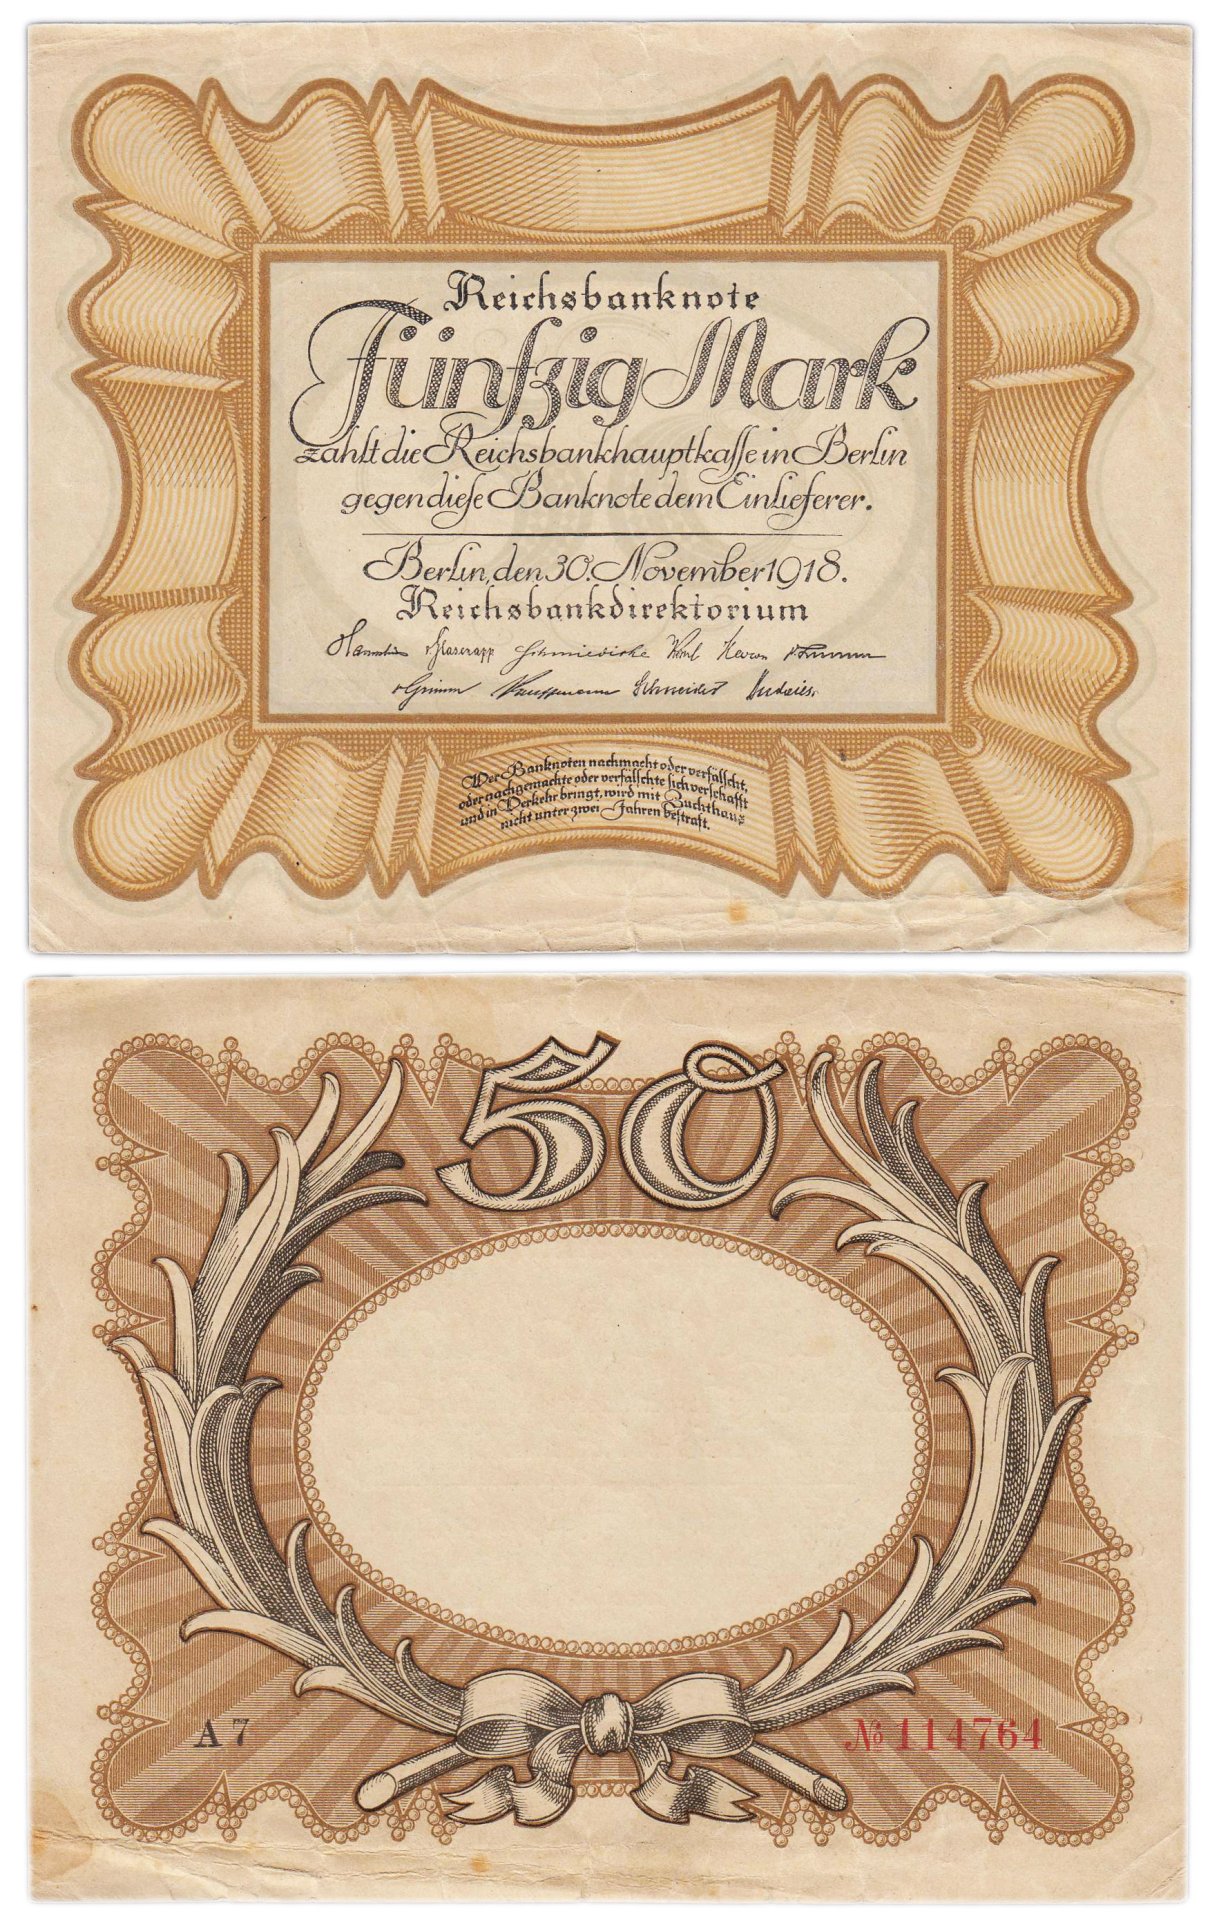 Reichsbanknote
Fünfzig Mark
zahlt die Reichsbankhauptkasse in Berlin
gegen diese Banknote dem Einlieferer.
Berlin, den 30. November 1918.
Reichsbankdirektorium
v Glasenapp Schmiedicke Korn Havenstein
v Grimm Kauffmann Schneider Budczies
Wer Banknoten nachmacht oder verfälscht,
oder nachgemachte oder verfälschte sich verschafft
und in Verkehr bringt, wird mit Zuchthaus
nicht unter zwei Jahren bestraft.
50
A 7
№ 114764